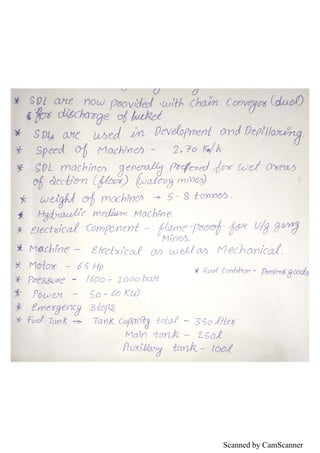 * SDL are now provided with chain conveyor (duel)
& for discharge of bucket
* SDLs are used in Development and Depillaring
* Speed of Machines - 2.70 km/h
* SDL machines generally preferred for wet areas
of section (floor) (watery mines)
* weight of machines → 5-8 tonnes.
* Hydraulic medium Machine.
* Electrical Component - flame-proof for U/g gassy
Mines.
* Machine - Electrical as well as Mechanical.
* Motor - 65 Hp
* Roof Condition - Prefers goods
* Pressure - 1600 - 2000 bar
* Power - 50-60 KW
* Emergency stops
* Fuel Tank → Tank Capacity total - 350 liter
Main tank - 250l
Auxillary tank - 100l
Scanned by CamScanner